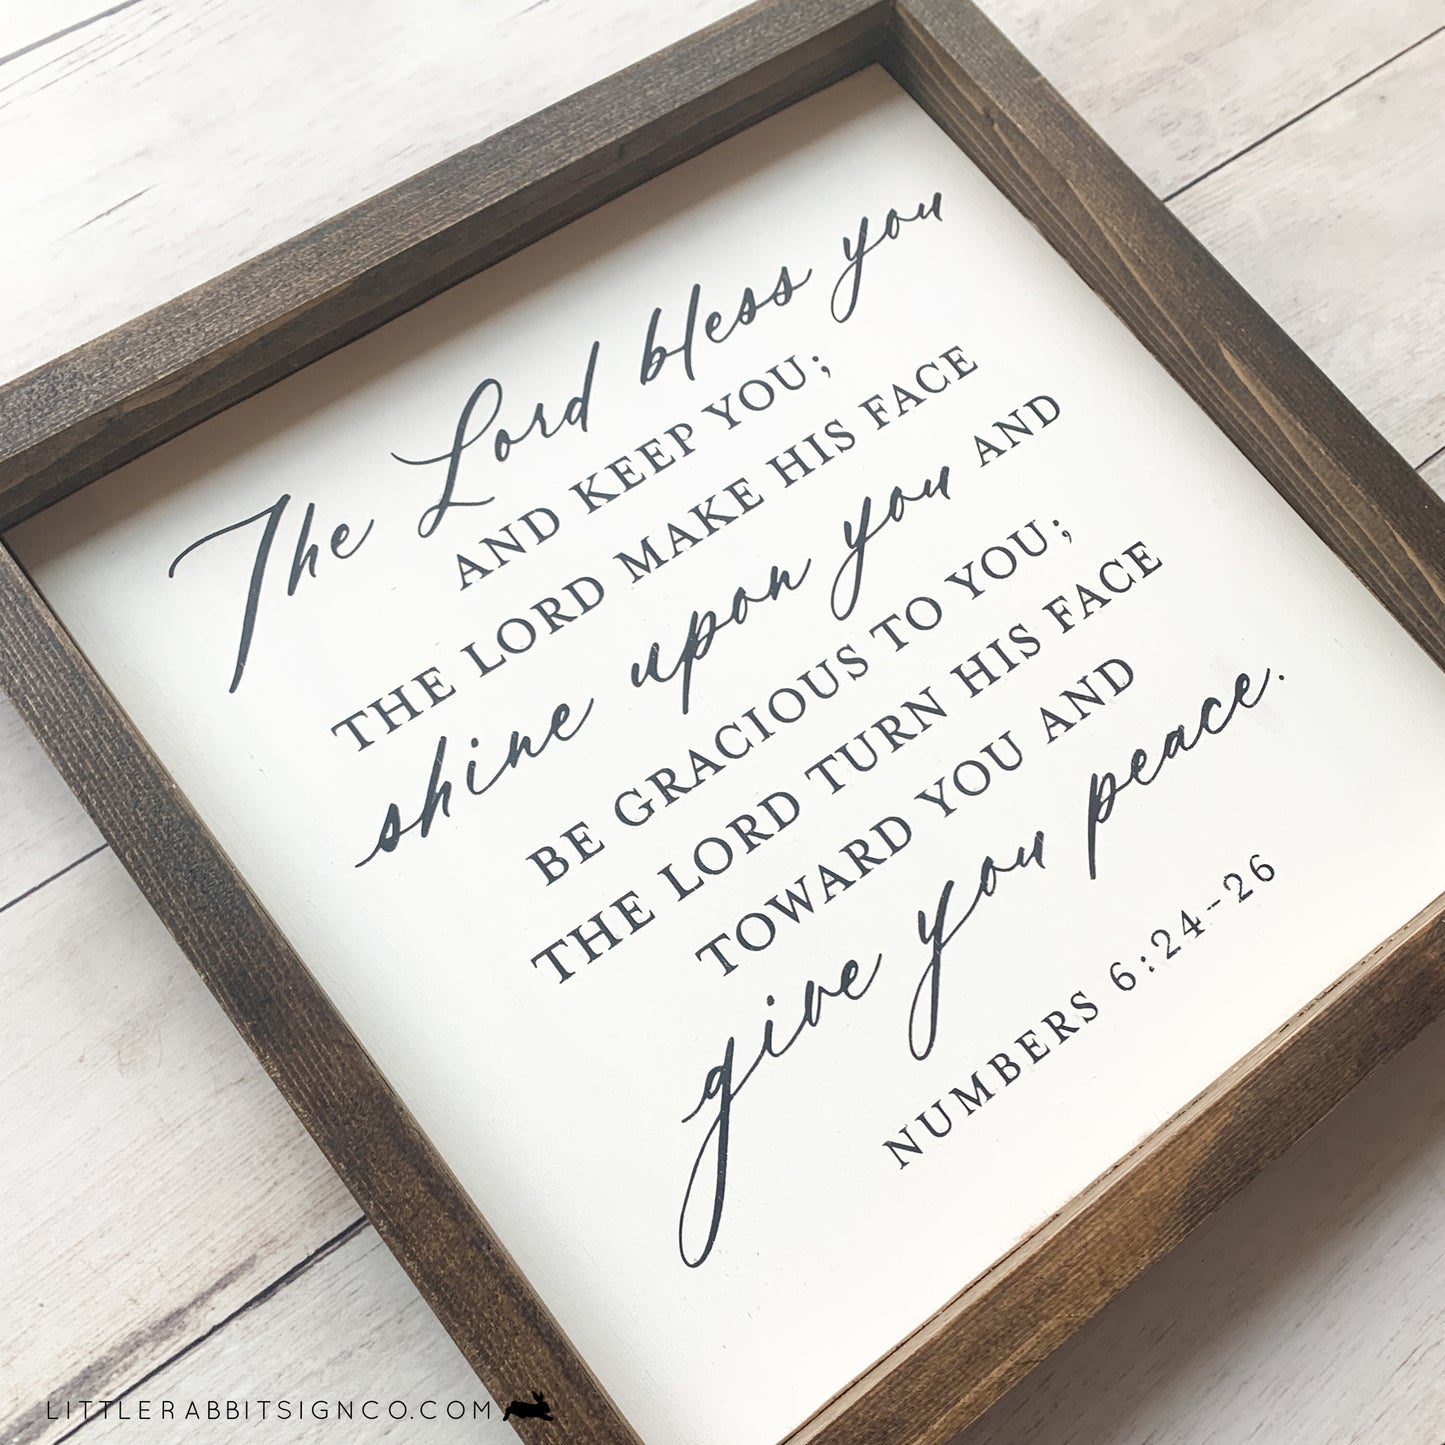 The Lord bless you
AND KEEP YOU;
THE LORD MAKE HIS FACE
shine upon you AND
BE GRACIOUS TO YOU;
THE LORD TURN HIS FACE
TOWARD YOU AND
give you peace.
NUMBERS 6:24-26
LITTLERABBITSIGNCO.COM